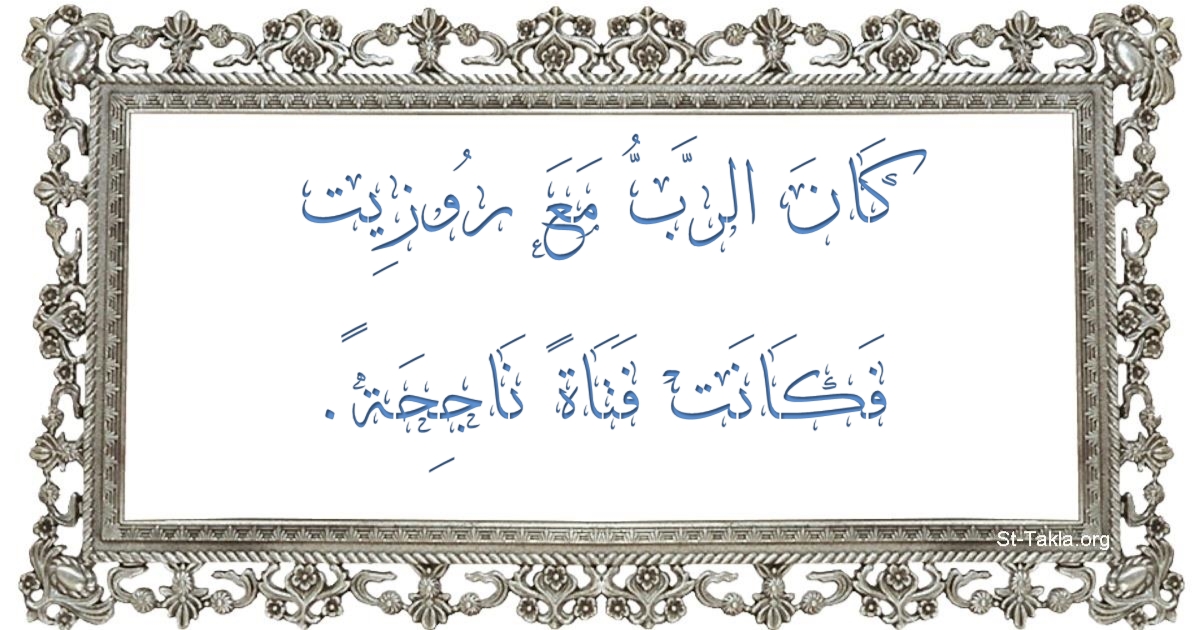 كَانَ الرَّبُّ مَعَ رُوزِيِت
فَكَانَتْ فَتَاةً نَاجِحَةً.
St-Takla.org